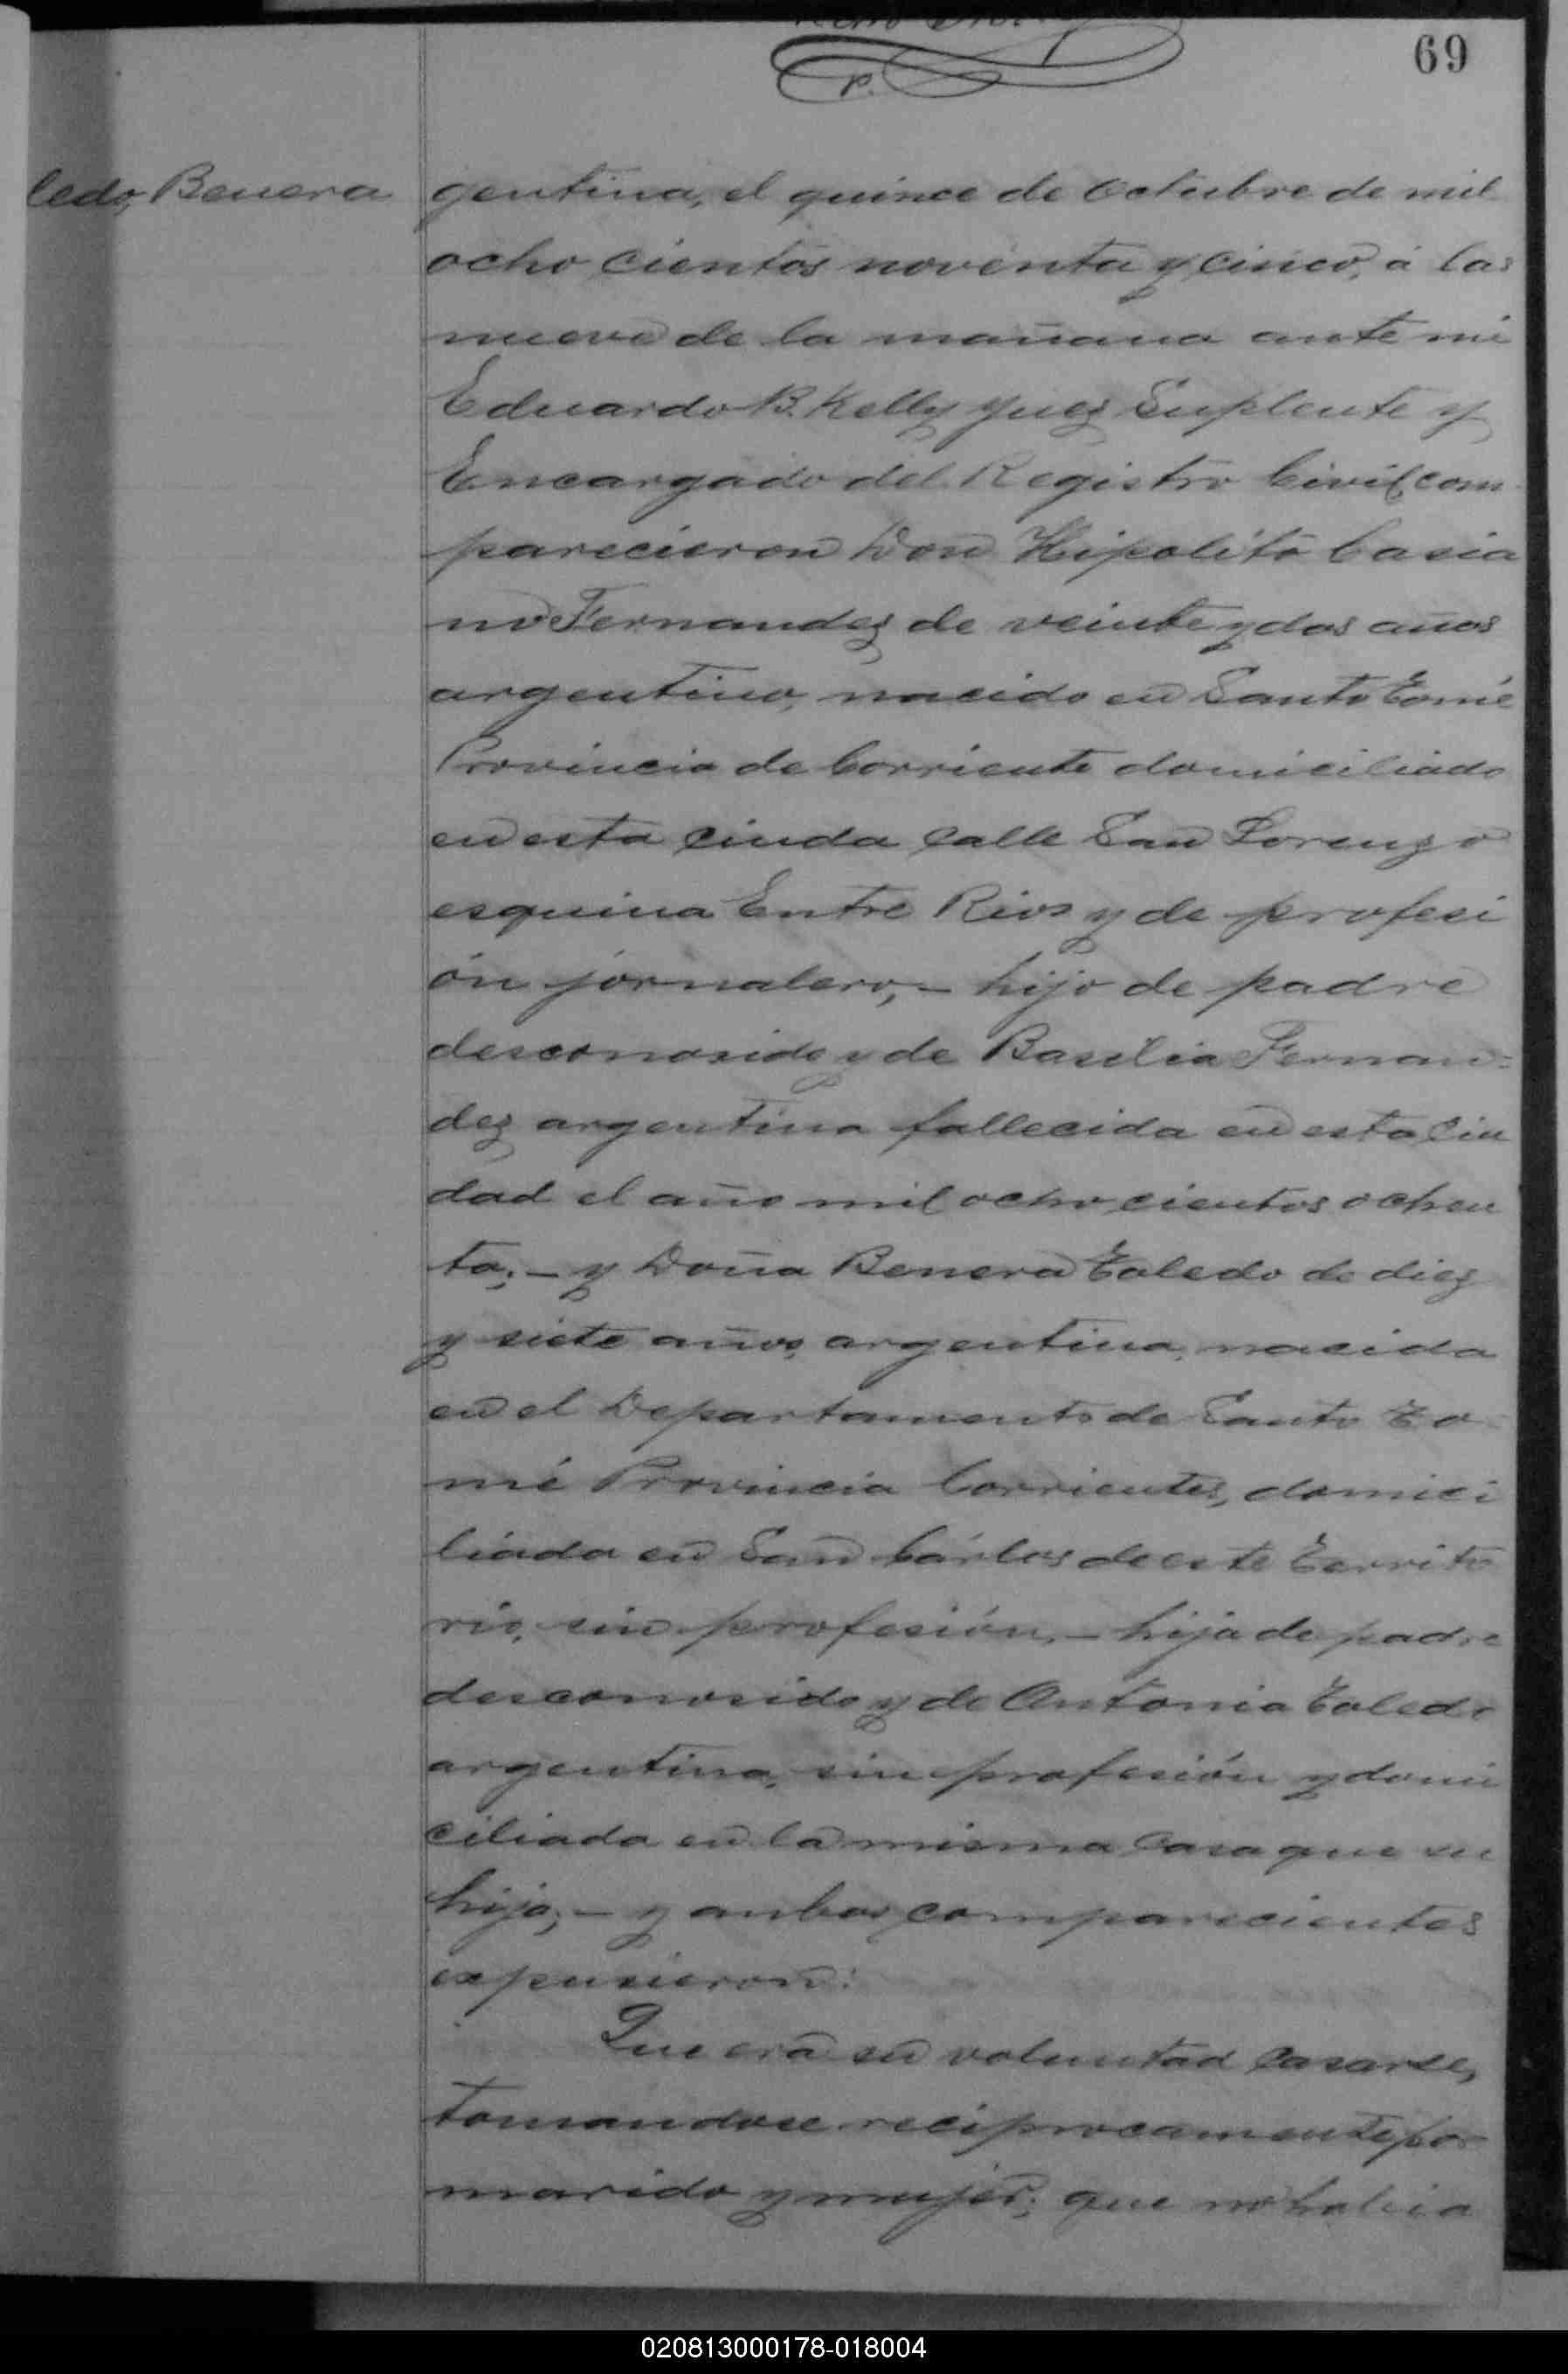 69
P.
ledo, Benera
gentina, el quince de Octubre de mil
ocho cientos noventa y cinco, á las
nueve de la mañana ante mi
Eduardo B. Kelly Juez Suplente y
Encargado del Registro Civil, com
parecieron Don Hipolito Casia
no Fernandez de veinte y dos años
argentino, nacido en Santo Tomé
Provincia de Corriente domiciliado
en esta ciuda calle San Lorenzo
esquina Entre Rios y de profesi
ón jornalero, – hijo de padre
desconosido y de Basilia Fernan=
dez argentina fallecida en esta ciu
dad el año mil ocho cientos ochen
ta; – y Doña Benera Toledo de diez
y siete años, argentina, nacida
en el Departamento de Santo To
mé Provincia Corrientes, domici
liada en San Cárlos de este Territo
rio, sin profesión, – hija de padre
desconosido y de Antonia Toledo
argentina, sin profesión y domi
ciliada en la misma casa que su
hija; – y anbos comparecientes
expusieron:
Que era su voluntad casarse,
tomandose reciprocamente por
marido y mujer; que no habia
020813000178-018004